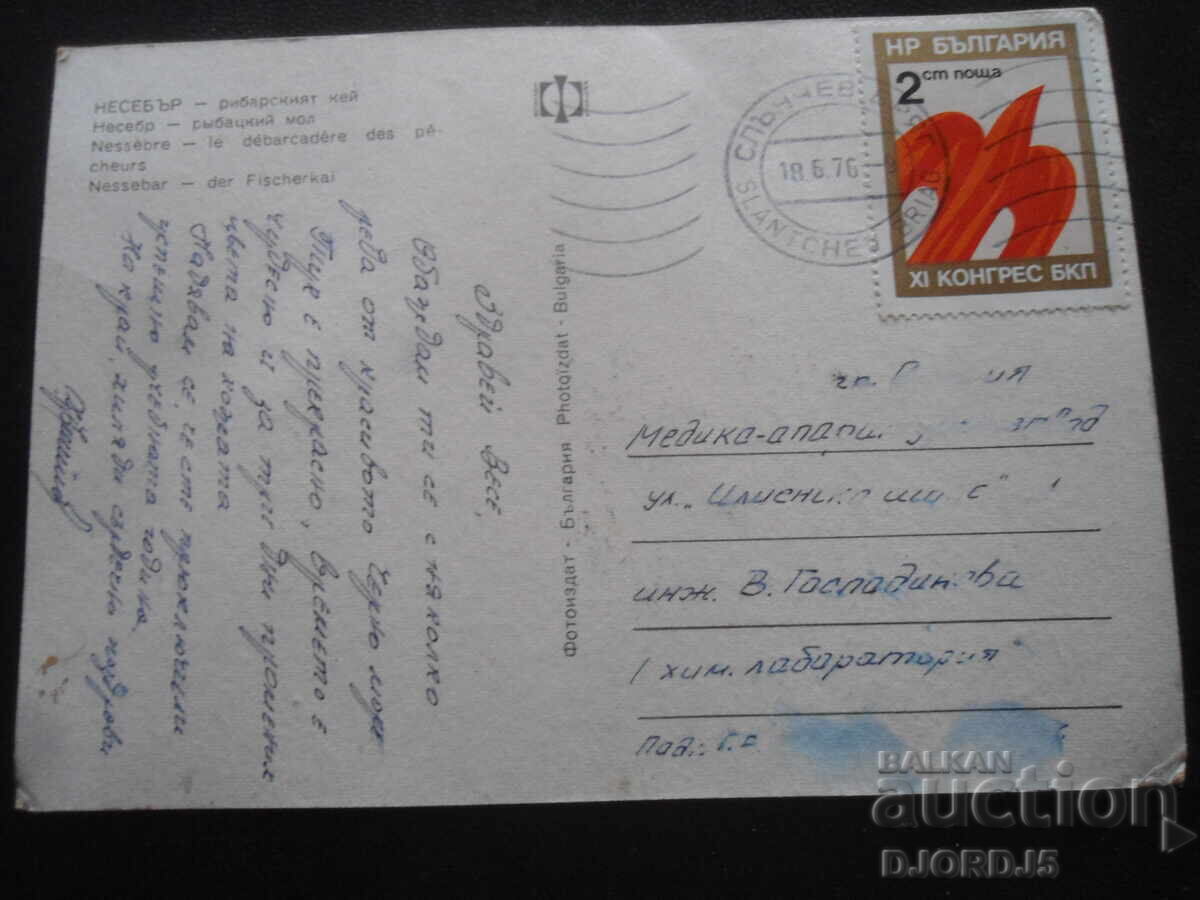 НЕСЕБЪР — рибарският кей
Несебр — рыбацкий мол
Nessèbre — le débarcadère des pê-
cheurs
Nessebar — der Fischerkai
Здравей Весе,
Обаждам ти се с няколко
реда от красивото Черно море
Тук е прекрасно, времето е
чудесно и за три дни промених
цвета на кожата
Надявам се че сте приключили
успешно учебната година.
На край, хиляди сърдечни поздрави
Фотоиздат - България Photoizdat - Bulgaria
НР БЪЛГАРИЯ
2 ст поща
XI КОНГРЕС БКП
СЛЪНЧЕВ
18.6.76
SLANTCHEV BRIAG
гр.
Медика-апарати
ул.
инж. В. Господинова
/хим. лабаратория"
Под.:
BALKAN
auction
DJORDJ5